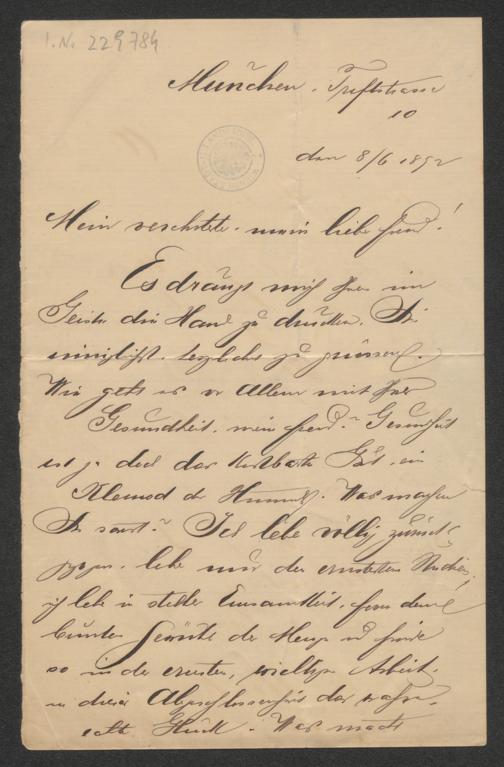 I. N. 229784
München, Triftstrasse
10
den 8/6 1892
Mein verehrter, mein lieber Freund!
Es drängt mich Ihnen im
Geiste die Hand zu drücken, Sie
innigst, herzlichst zu grüssen.
Wie geht es vor Allem mit Ihrer
Gesundheit, mein Freund? Gesundheit
ist ja doch das kostbarste Gut, ein
Kleinod des Himmels. Was machen
Sie sonst? Ich lebe völlig zurückge-
zogen, lebe nur den ernstesten Studien,
ich lebe in stiller Einsamkeit, fern dem
bunten Gewühle der Menge und finde
so in der ernsten, Arbeit,
in dieser Abgeschlossenheit das wahre,
echte Glück. Was macht